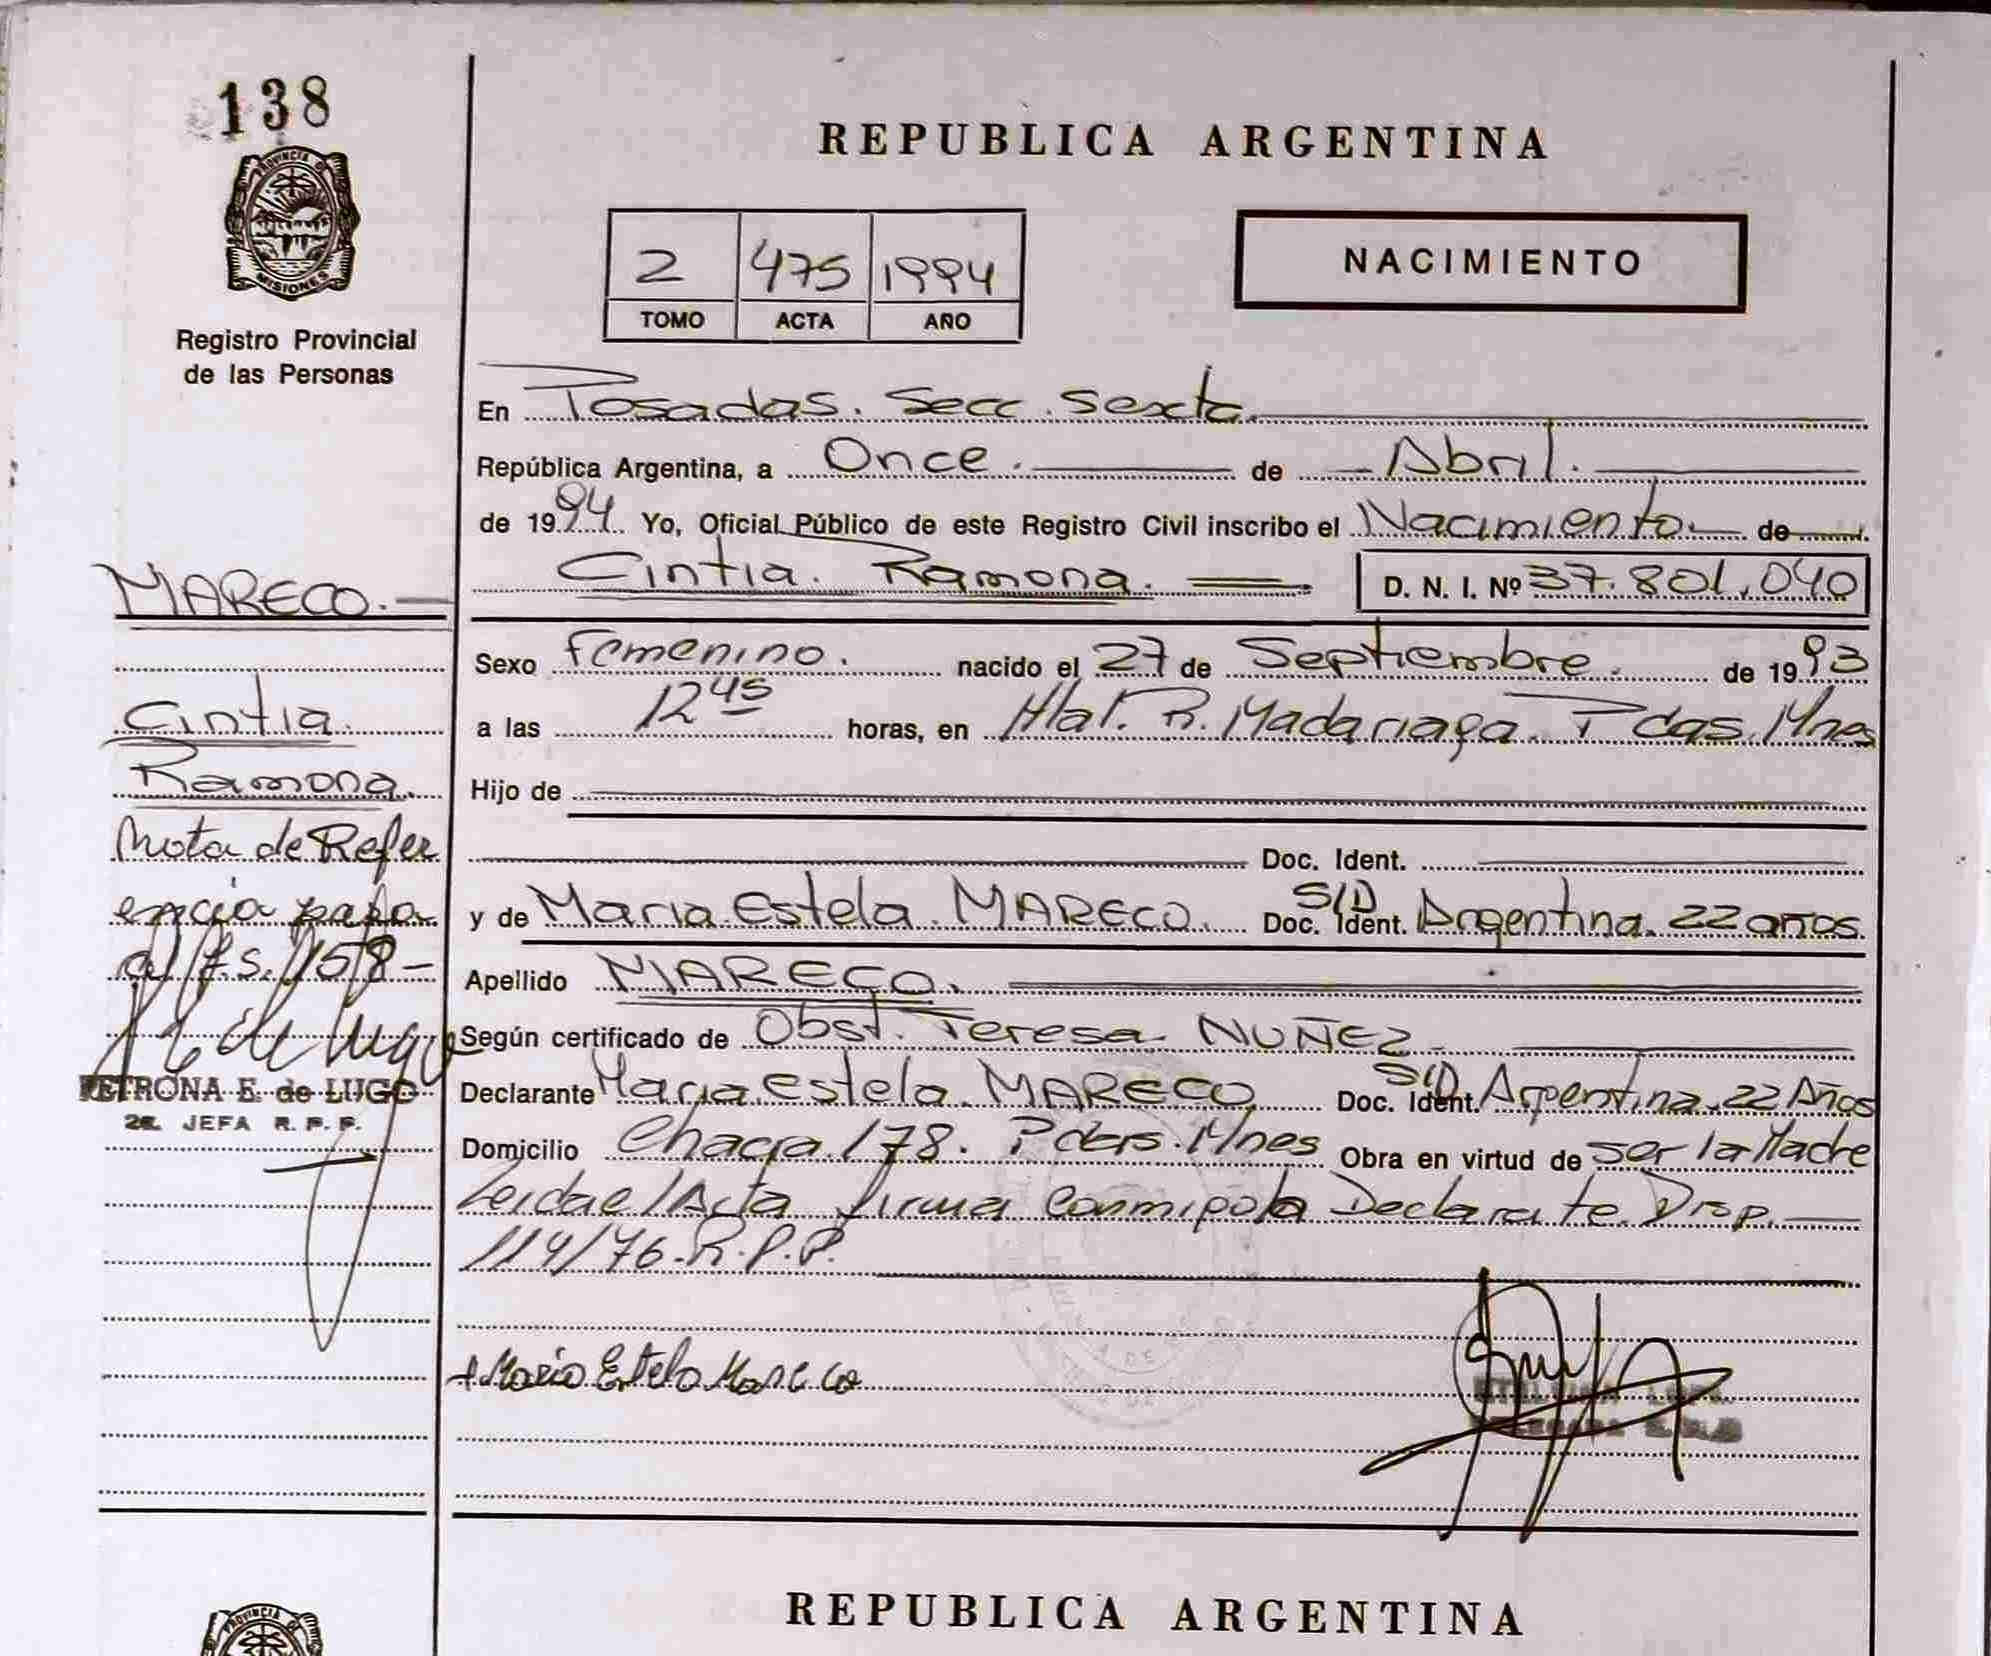 138
PROVINCIA DE
MISIONES
Registro Provincial
de las Personas
MARECO.
Cintia.
Ramona.
Nota de Refer
encia
al fs. 158
PETRONA E. de LUGO
2a. JEFA R. P. P.
REPUBLICA ARGENTINA
2 475 1994
TOMO ACTA AÑO
NACIMIENTO
En Posadas. Secc. Sexta.
República Argentina, a Once. de Abril.
de 1994 Yo, Oficial Público de este Registro Civil inscribo el Nacimiento. de
Cintia. Ramona. D. N. I. Nº 37.801.040
Sexo Femenino. nacido el 27 de Septiembre. de 1993
a las 12 45 horas, en Htal. R. Madariaga. Pdas. Mnes
Hijo de
Doc. Ident.
y de Maria Estela. MARECO. Doc. Ident. S/D Argentina. 22 años.
Apellido MARECO.
Según certificado de Obst. Teresa NUÑEZ
Declarante Maria Estela. MARECO Doc. Ident. S/D Argentina. 22 Años
Domicilio Chacra 178. Pdas. Mnes Obra en virtud de ser la Madre
Leida el Acta firma conmigo la Declarante. Disp.
114/76. R.P.P.
Maria Estela Mareco
REPUBLICA ARGENTINA
PROVINCIA D